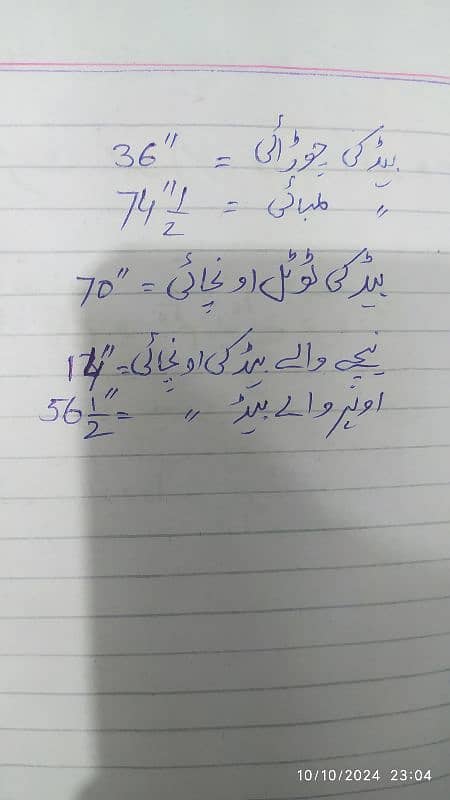 بیڈ کی چوڑائی = 36"
〃 لمبائی = 74"1/2
بیڈ کی ٹوٹل اونچائی = 70"
نیچے والے بیڈ کی اونچائی = "
اوپر والے بیڈ 〃 = 56 1/2"
10/10/2024 23:04